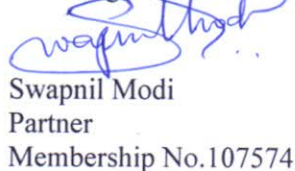 Swapnil Modi
Partner
Membership No.107574